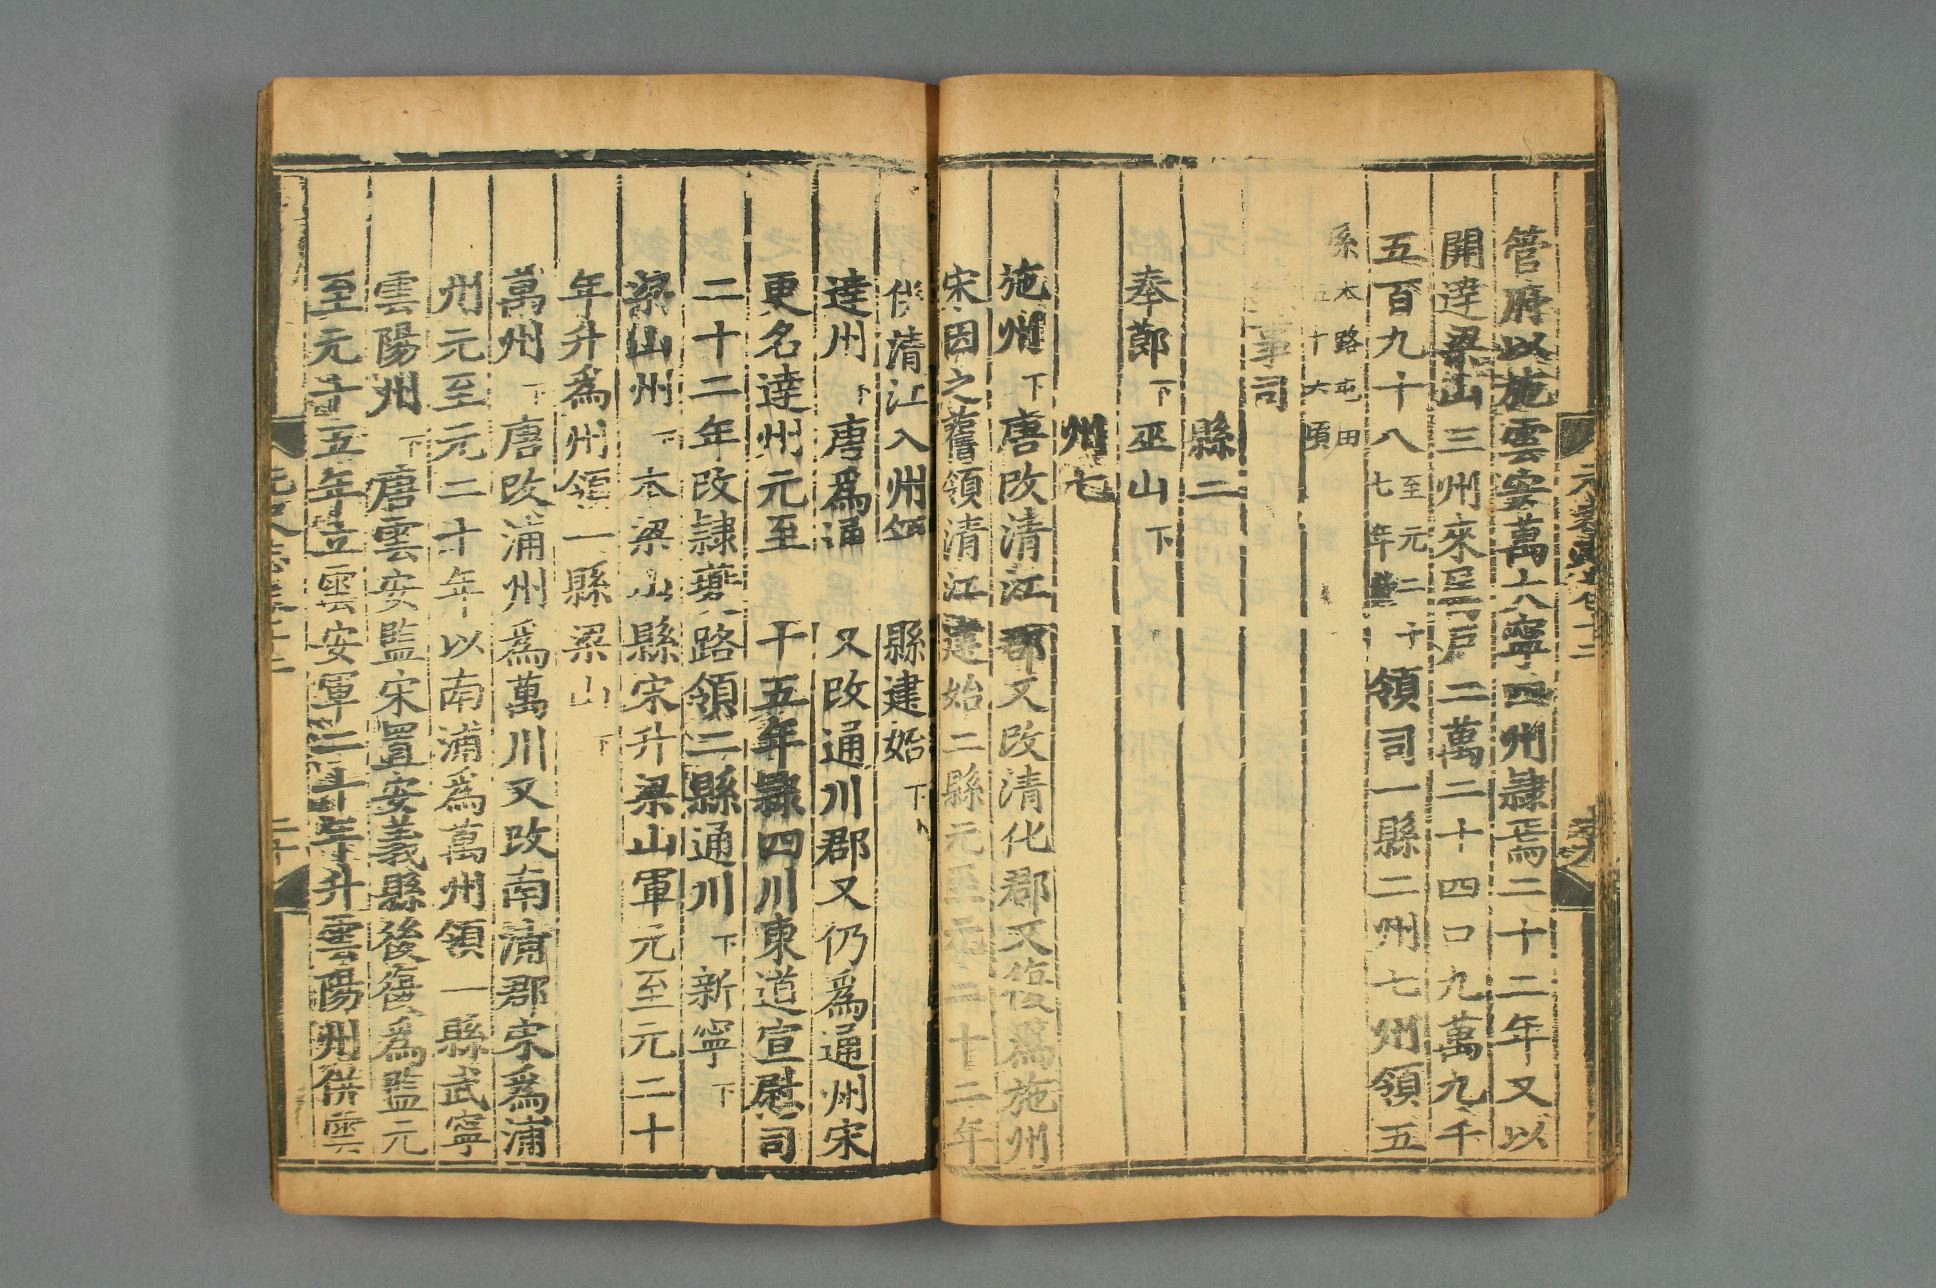 管府以施雲安萬大寧四州隷焉二十二年又以
開達梁山三州來屬戸二萬二十四口九萬九千
五百九十八至元二十七年數領司一縣二州七州領五
縣本路屯田五十六頃
事司
縣二
奉節下巫山下
州七
施州下唐改清江郡又改清化郡又復爲施州
宋因之舊領清江建始二縣元至元二十二年
併清江入州領縣建始下
達州下唐爲通州又改通川郡又仍爲通州宋
更名達州元至元十五年隷四川東道宣慰司
二十二年改隷夔路領二縣通川下新寧下
梁山州下本梁山縣宋升梁山軍元至元二十
年升爲州領一縣梁山下
萬州下唐改浦州爲萬川又改南浦郡宋爲浦
州元至元二十年以南浦爲萬州領一縣武寧
雲陽州下唐雲安監宋置安義縣後復爲監元
至元十五年立雲安軍二十年升雲陽州併雲